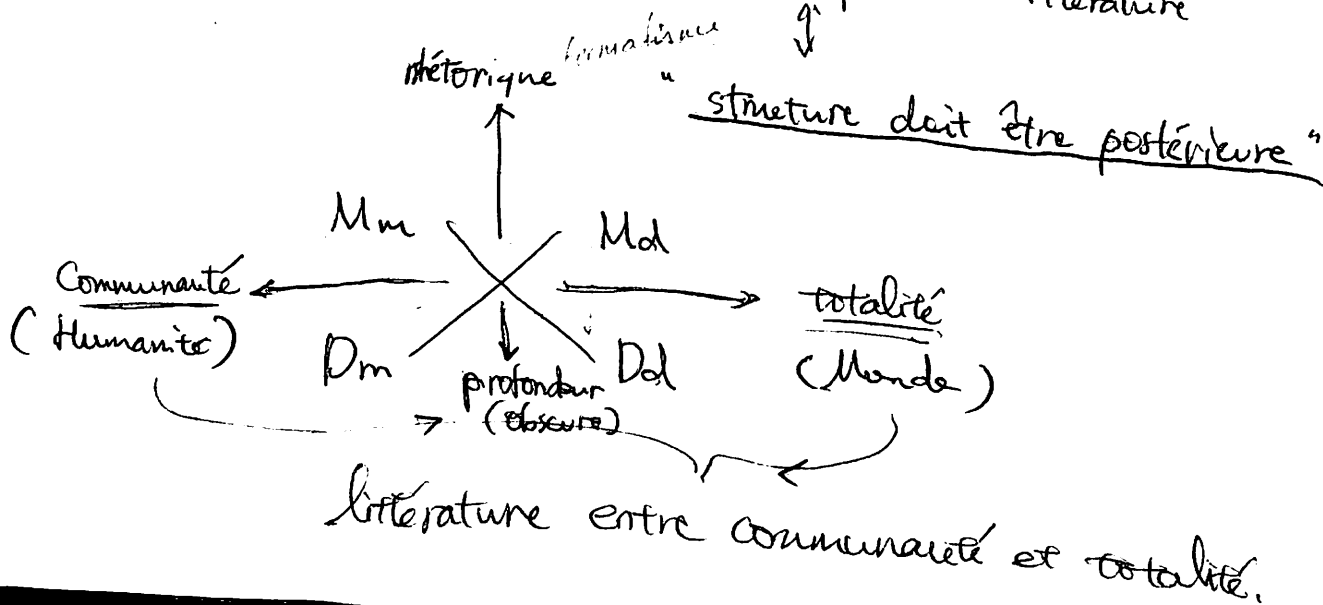 littérature
rhétorique formalisme
"structure doit être postérieure"
Mm Md
Communauté totalité
(Humanité) (Monde)
Dm profondeur Dd
(obscure)
littérature entre communauté et totalité.